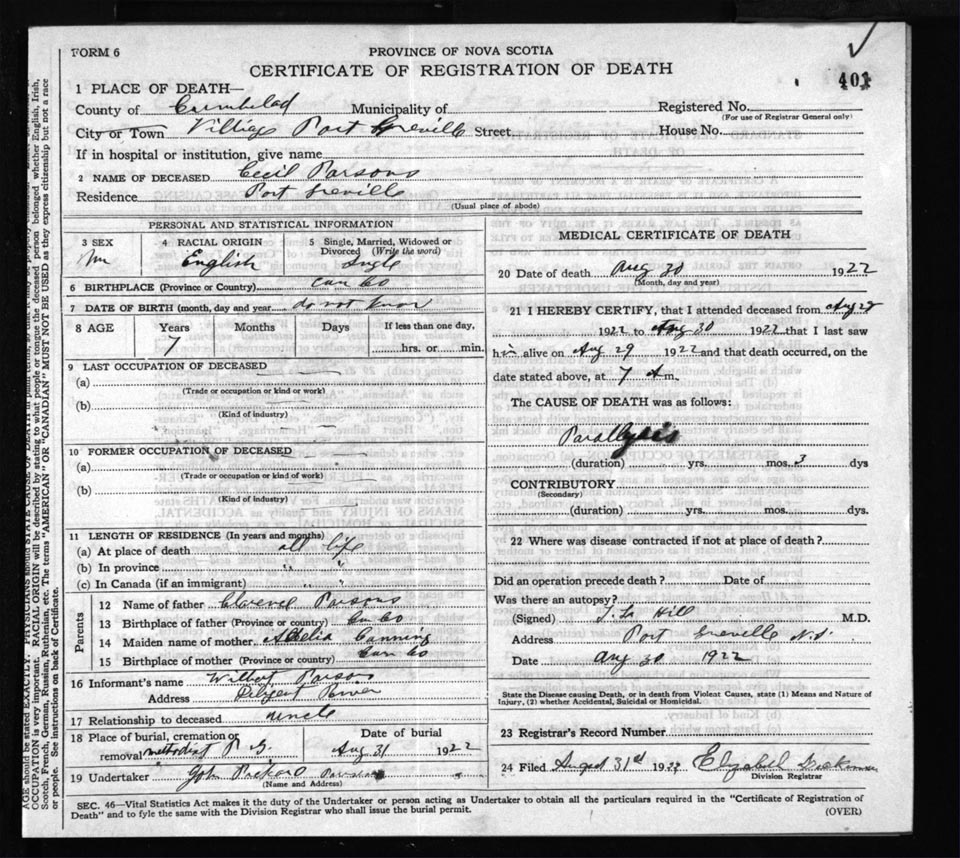 FORM 6
PROVINCE OF NOVA SCOTIA
CERTIFICATE OF REGISTRATION OF DEATH
401
1 PLACE OF DEATH—
County of Cumbelad Municipality of Registered No.
(For use of Registrar General only)
City or Town Village Port Greville Street. House No.
If in hospital or institution, give name
2 NAME OF DECEASED Cecil Parsons
Residence Port Greville
(Usual place of abode)
PERSONAL AND STATISTICAL INFORMATION
3 SEX 4 RACIAL ORIGIN 5 Single, Married, Widowed or Divorced (Write the word)
m English Single
6 BIRTHPLACE (Province or Country) Cum Co
7 DATE OF BIRTH (month, day and year do not know
8 AGE Years Months Days If less than one day,
7 hrs. or min.
9 LAST OCCUPATION OF DECEASED
(a)
(Trade or occupation or kind or work)
(b)
(Kind of industry)
10 FORMER OCCUPATION OF DECEASED
(a)
(Trade or occupation or kind of work)
(b)
(Kind of industry)
11 LENGTH OF RESIDENCE (In years and months)
(a) At place of death all life
(b) In province " "
(c) In Canada (if an immigrant) " "
Parents
12 Name of father Clarence Parsons
13 Birthplace of father (Province or country) Cum Co
14 Maiden name of mother Canning
15 Birthplace of mother (Province or country) Cum Co
16 Informant's name Wilbert Parsons
Address Diligent River
17 Relationship to deceased uncle
18 Place of burial, cremation or removal Methodist P G Date of burial Aug 31 1922
19 Undertaker John Packard
(Name and Address)
MEDICAL CERTIFICATE OF DEATH
20 Date of death Aug 30 1922
(Month, day and year)
21 I HEREBY CERTIFY, that I attended deceased from Aug 28
1922 to Aug 30 1922 that I last saw
him alive on Aug 29 1922 and that death occurred, on the
date stated above, at 7 A.m.
The CAUSE OF DEATH was as follows:
Parallysis
(duration) yrs. mos. 3 dys
CONTRIBUTORY
(Secondary)
(duration) yrs. mos. dys.
22 Where was disease contracted if not at place of death?
Did an operation precede death? Date of
Was there an autopsy?
(Signed) Hill M.D.
Address Port Greville N.S.
Date Aug 30 1922
State the Disease causing Death, or in death from Violent Causes, state (1) Means and Nature of
Injury, (2) whether Accidental, Suicidal or Homicidal.
23 Registrar's Record Number
24 Filed August 31st 1922 Elizabeth
Division Registrar
SEC. 46—Vital Statistics Act makes it the duty of the Undertaker or person acting as Undertaker to obtain all the particulars required in the "Certificate of Registration of
Death" and to fyle the same with the Division Registrar who shall issue the burial permit.
(OVER)
AGE should be stated EXACTLY. PHYSICIANS should STATE CAUSE OF DEATH in
OCCUPATION is very important. RACIAL ORIGIN will be described by stating to what people or tongue the deceased person belonged whether English, Irish,
Scotch, French, German, Russian, Ruthenian, etc. The terms "AMERICAN" OR "CANADIAN" MUST NOT BE USED as they express citizenship but not a race
or people. See instructions on back of Certificate.